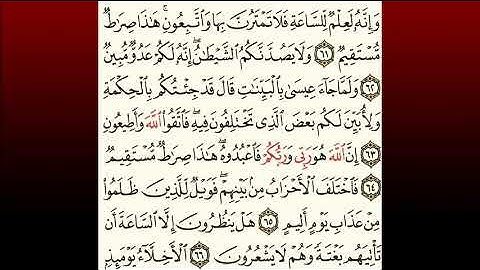 وَإِنَّهُۥ لَعِلْمٌ لِّلسَّاعَةِ فَلَا تَمْتَرُنَّ بِهَا وَٱتَّبِعُونِ ۚ هَٰذَا صِرَٰطٌ
مُّسْتَقِيمٌ ٦١ وَلَا يَصُدَّنَّكُمُ ٱلشَّيْطَٰنُ ۖ إِنَّهُۥ لَكُمْ عَدُوٌّ مُّبِينٌ
٦٢ وَلَمَّا جَآءَ عِيسَىٰ بِٱلْبَيِّنَٰتِ قَالَ قَدْ جِئْتُكُم بِٱلْحِكْمَةِ
وَلِأُبَيِّنَ لَكُم بَعْضَ ٱلَّذِى تَخْتَلِفُونَ فِيهِ ۖ فَٱتَّقُوا۟ ٱللَّهَ وَأَطِيعُونِ
٦٣ إِنَّ ٱللَّهَ هُوَ رَبِّى وَرَبُّكُمْ فَٱعْبُدُوهُ ۚ هَٰذَا صِرَٰطٌ مُّسْتَقِيمٌ
٦٤ فَٱخْتَلَفَ ٱلْأَحْزَابُ مِنۢ بَيْنِهِمْ ۖ فَوَيْلٌ لِّلَّذِينَ ظَلَمُوا۟
مِنْ عَذَابِ يَوْمٍ أَلِيمٍ ٦٥ هَلْ يَنظُرُونَ إِلَّا ٱلسَّاعَةَ أَن
تَأْتِيَهُم بَغْتَةً وَهُمْ لَا يَشْعُرُونَ ٦٦ ٱلْأَخِلَّآءُ يَوْمَئِذٍۭ